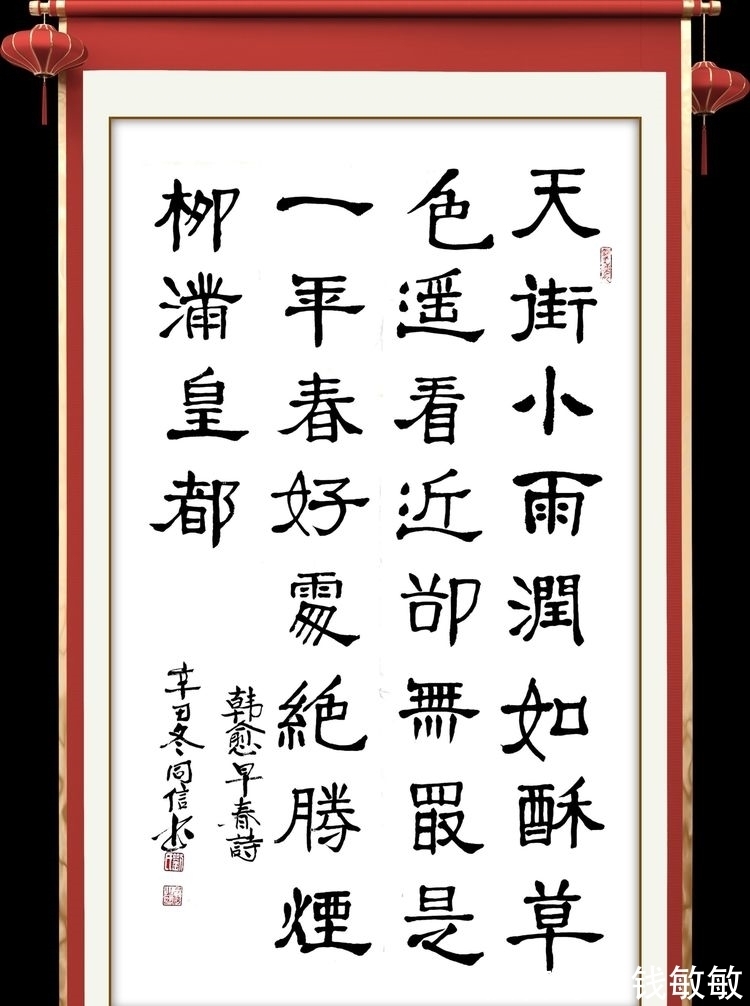 天街小雨潤如酥草
色遥看近卻無最是
一年春好處絶勝煙
柳滿皇都
韩愈早春詩
辛丑冬同信书
钱敏敏